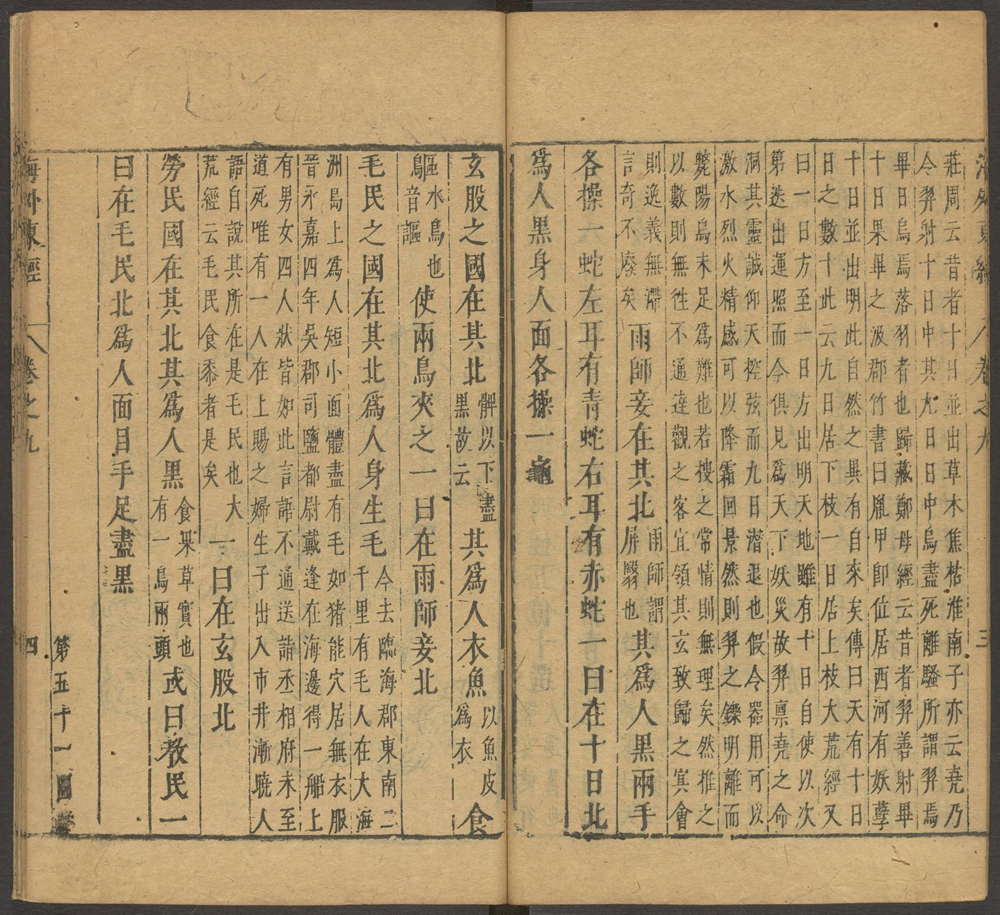 海外東經 卷之九 三
莊周云昔者十日並出草木焦枯淮南子亦云堯乃
令羿射十日中其九日日中烏盡死離騷所謂羿焉
畢日烏焉落羽者也歸藏鄭母經云昔者羿善射畢
十日果畢之汲郡竹書曰胤甲卽位居西河有妖孽
十日並出明此自然之異有自來矣傳曰天有十日
日之數十此云九日居下枝一日居上枝大荒經又
曰一日方至一日方出明天地雖有十日自使以次
第迭出運照而今俱見爲天下妖災故羿禀堯之命
洞其靈誠仰天控弦而九日潛退也假令器用可以
激水烈火精感可以降霜回景然則羿之鑠明離而
斃陽烏未足爲難也若搜之常情則無理矣然推之
以數則無徃不通達觀之客宜領其玄致歸之冥會
則逸義無滯言奇不廢矣 雨師妾在其北 雨師謂屏翳也 其爲人黑兩手
各操一蛇左耳有青蛇右耳有赤蛇一曰在十日北
爲人黑身人面各操一龜
玄股之國在其北 髀以下盡黑故云 其爲人衣魚 以魚皮爲衣 食
鷗 水鳥也音謳 使兩鳥夾之一曰在雨師妾北
毛民之國在其北爲人身生毛 今去臨海郡東南二千里有毛人在大海
洲島上爲人短小面體盡有毛如猪能穴居無衣服
晉永嘉四年吳郡司鹽都尉戴逢在海邊得一船上
有男女四人狀皆如此言語不通送詣丞相府未至
道死唯有一人在上賜之婦生子出入市井漸曉人
語自說其所在是毛民也大荒經云毛民食黍者是矣 一曰在玄股北
勞民國在其北其爲人黑 食果草實也有一鳥兩頭 或曰教民一
曰在毛民北爲人面目手足盡黑
第五十一圖
海外東經 卷之九 四